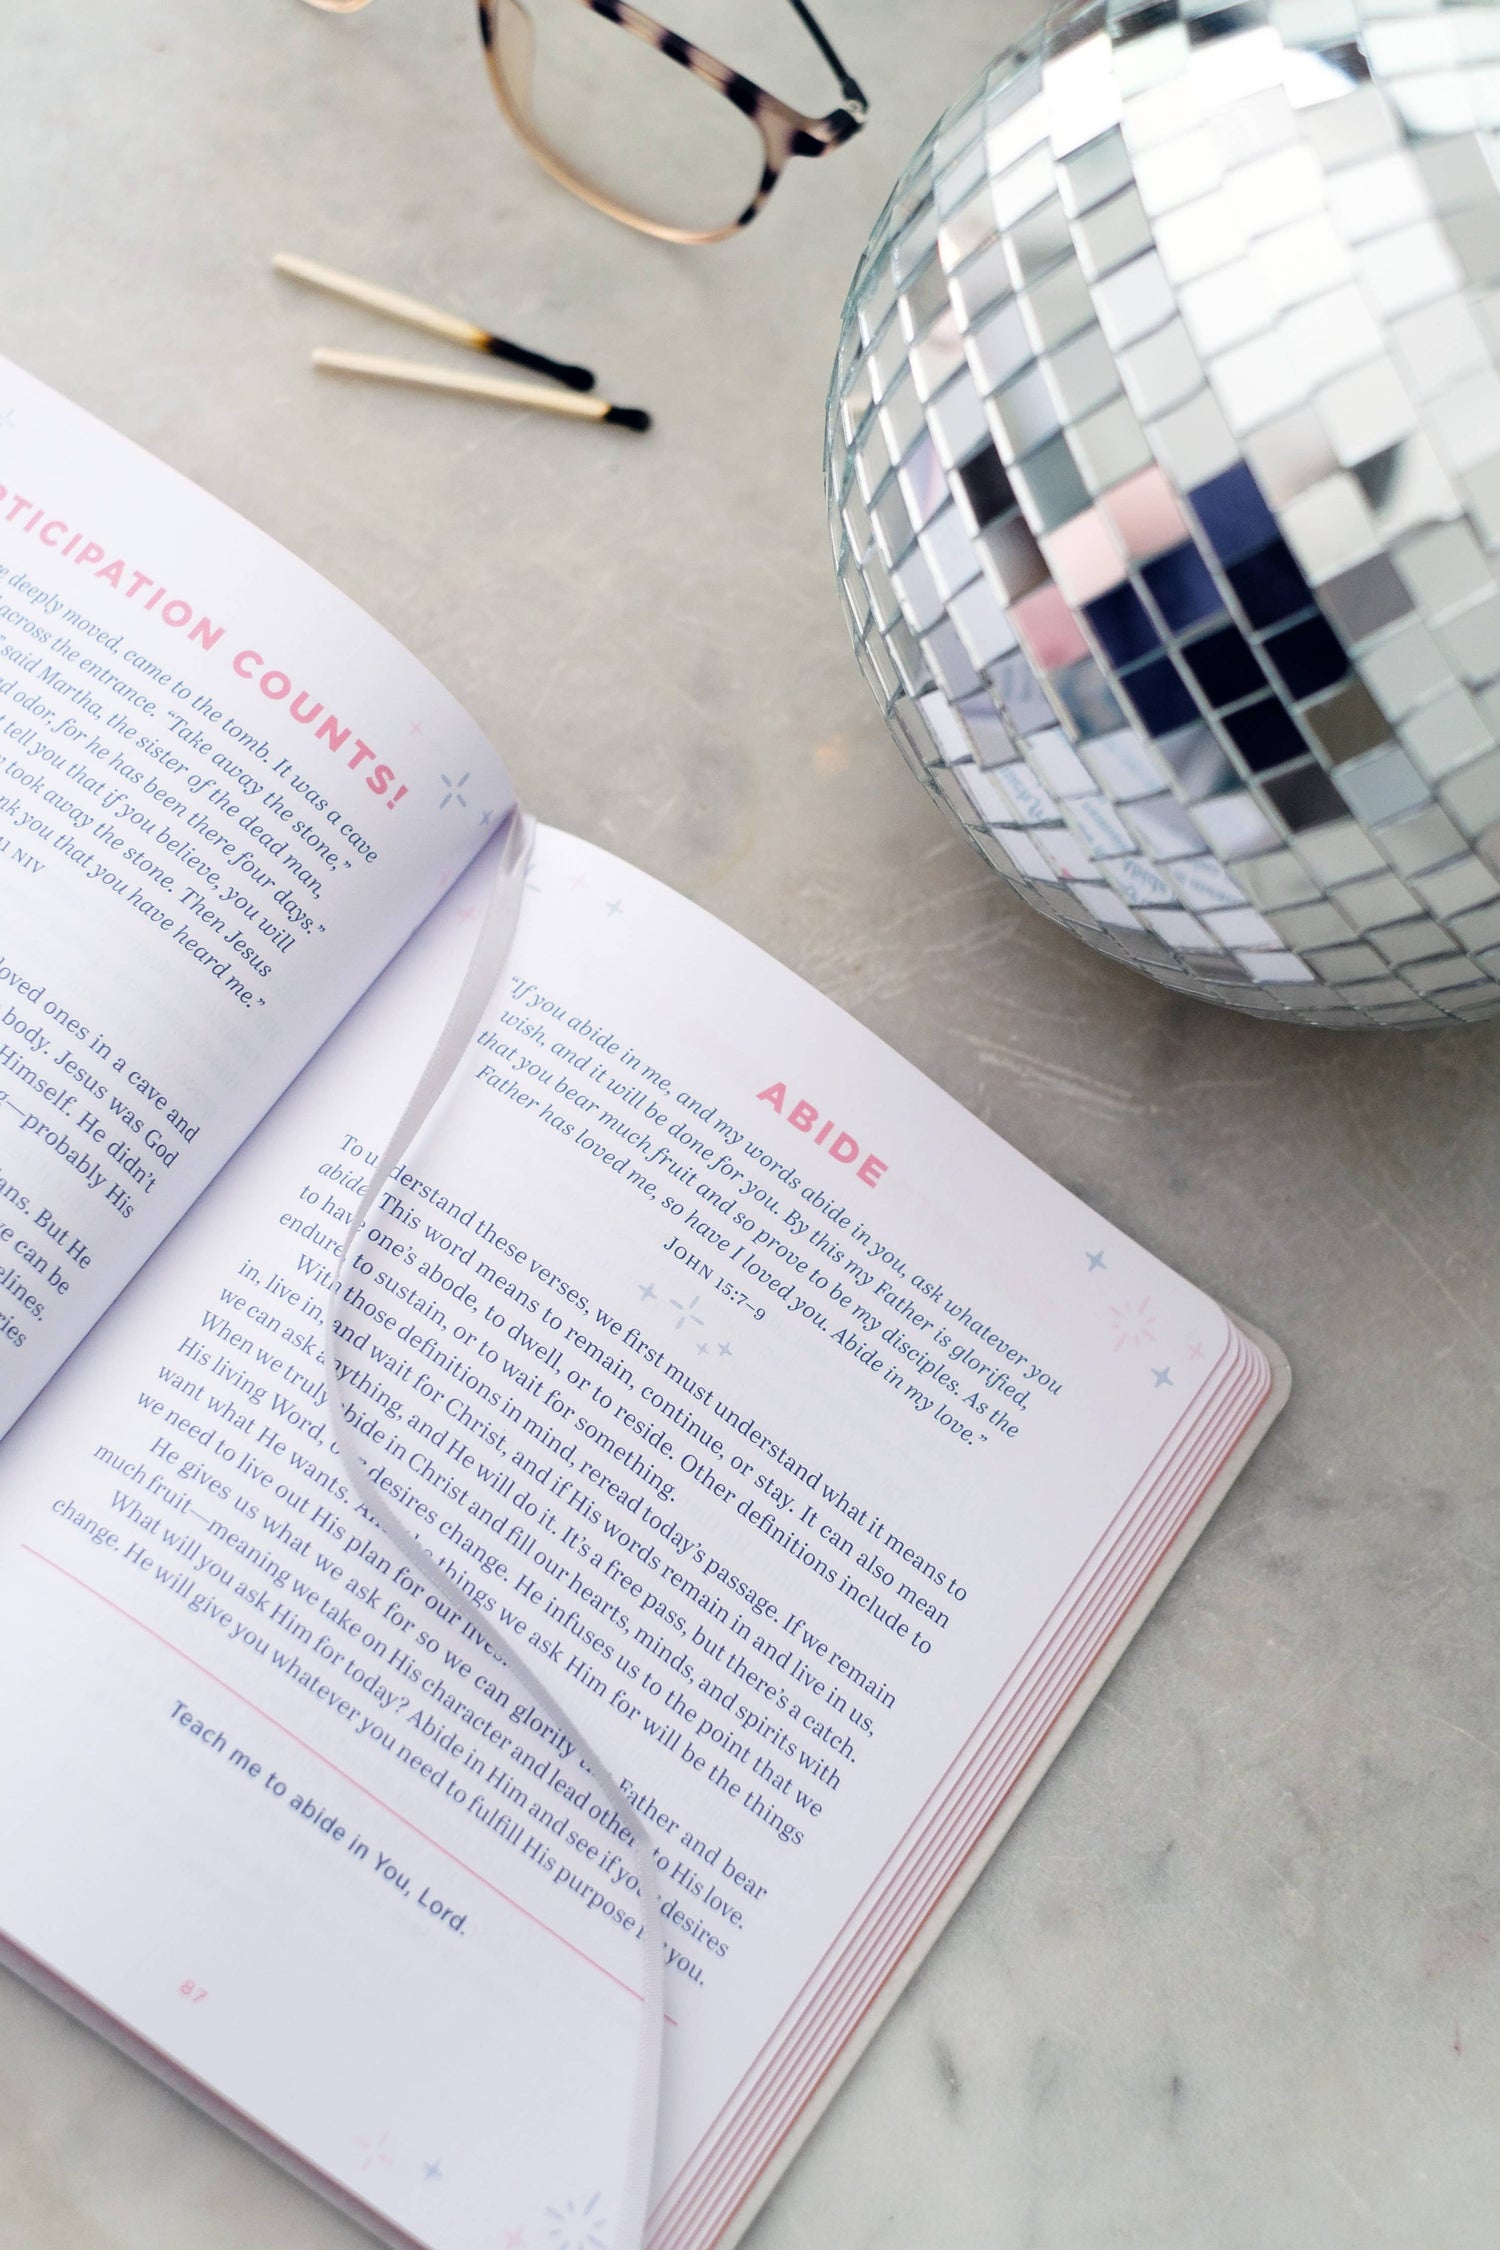 RTICIPATION COUNTS!
deeply moved, came to the tomb. It was a cave
across the entrance. “Take away the stone,”
said Martha, the sister of the dead man,
odor, for he has been there four days.”
tell you that if you believe, you will
took away the stone. Then Jesus
you that you have heard me.”
NIV
loved ones in a cave and
body. Jesus was God
Himself. He didn’t
—probably His
But He
can be
ABIDE
“If you abide in me, and my words abide in you, ask whatever you
wish, and it will be done for you. By this my Father is glorified,
that you bear much fruit and so prove to be my disciples. As the
Father has loved me, so have I loved you. Abide in my love.”
JOHN 15:7–9
To understand these verses, we first must understand what it means to
abide. This word means to remain, continue, or stay. It can also mean
to have one’s abode, to dwell, or to reside. Other definitions include to
endure, to sustain, or to wait for something.
With those definitions in mind, reread today’s passage. If we remain
in, live in, and wait for Christ, and if His words remain in and live in us,
we can ask anything, and He will do it. It’s a free pass, but there’s a catch.
When we truly abide in Christ and fill our hearts, minds, and spirits with
His living Word, our desires change. He infuses us to the point that we
want what He wants. And the things we ask Him for will be the things
we need to live out His plan for our lives.
He gives us what we ask for so we can glorify the Father and bear
much fruit—meaning we take on His character and lead others to His love.
What will you ask Him for today? Abide in Him and see if your desires
change. He will give you whatever you need to fulfill His purpose for you.
Teach me to abide in You, Lord.
87